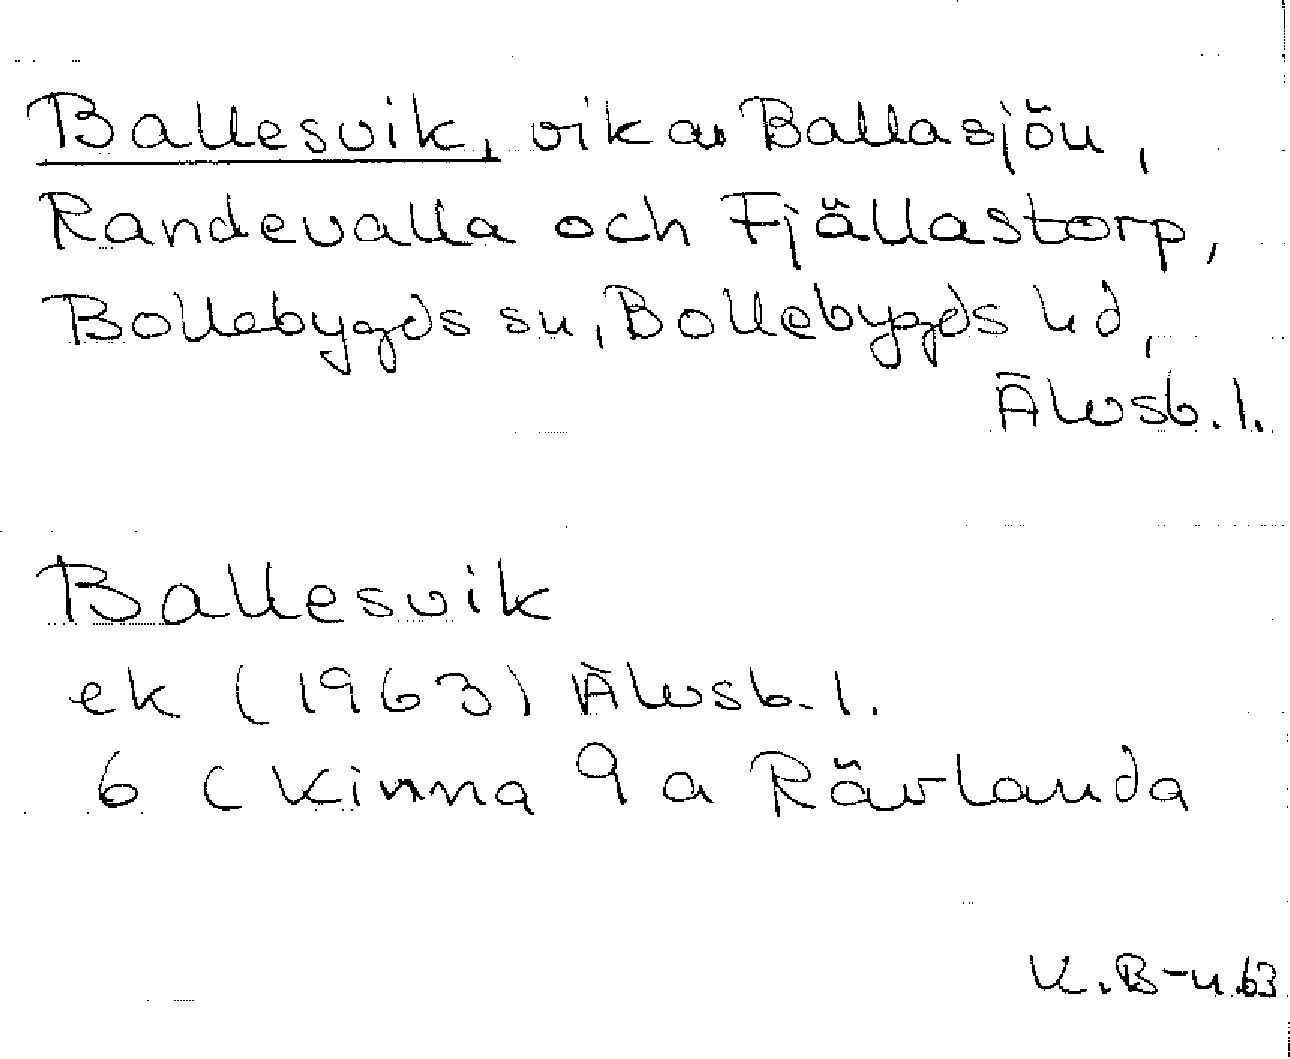 Ballesvik, vik av Ballasjön,
Randevalla och Fjällastorp,
Bollebygds sn, Bollebygds hd,
Älvsb. l.
Ballesvik
ek (1963) Älvsb. l.
6 C Kinna 9 a Rävlanda
K.B-n.63